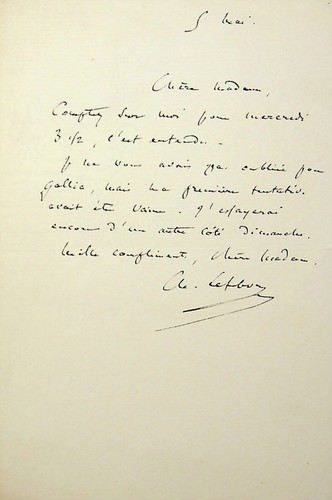 5 Mai.
Chère Madame,
Comptez sur moi pour mercredi
3 1/2, c'est entendu.
Je ne vous avais pas oubliée pour
Gallia, mais ma première tentative
avait été vaine. J'essayerai
encore d'un autre côté Dimanche.
Mille compliments, chère Madame.
Ch. Lefebvre